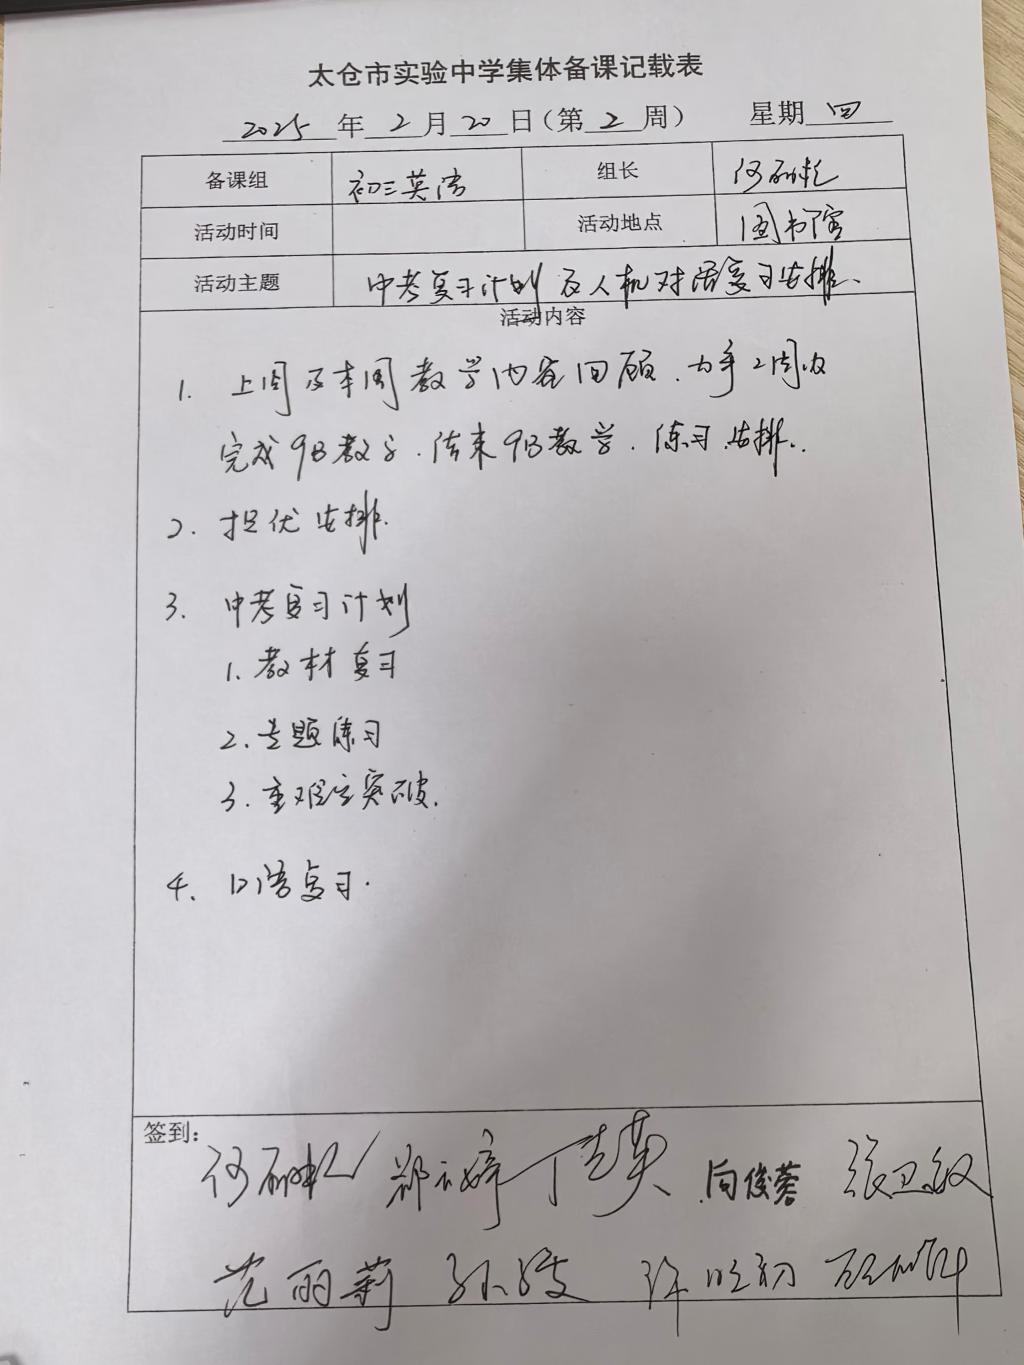 太仓市实验中学集体备课记载表
2025年2月20日（第2周） 星期四
备课组 初三英语 组长
活动时间 活动地点 图书馆
活动主题 中考复习计划及人机对话复习安排、
活动内容
1. 上周及本周教学内容回顾、力争2周内
完成9B教学. 结束9B教学. 练习安排.
2. 培优安排.
3. 中考复习计划
1. 教材复习
2. 专题练习
3. 重难点突破.
4. 口语复习.
签到：
张卫敏
范丽莉